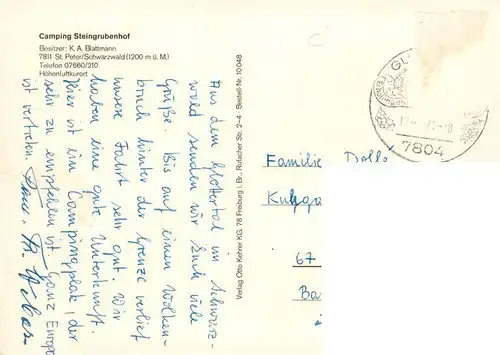 Camping Steingrubenhof
Besitzer: K. A. Blattmann
7811 St. Peter/Schwarzwald (1200 m ü. M.)
Telefon 07660/210
Höhenluftkurort
Aus dem Glottertal im Schwarz-
wald senden wir Euch viele
Grüße. Bis auf einen Wolken-
bruch hinter der Grenze verlief
unsere Fahrt sehr gut. Wir
haben eine gute Unterkunft.
Hier ist ein Campingplatz, der
sehr zu empfehlen ist. Ganz Europa
ist vertreten.
Verlag Otto Kehrer KG, 78 Freiburg i. Br., Rufacher Str. 2-4 · Bestell-Nr. 10048
7804
Familie
67
Ba